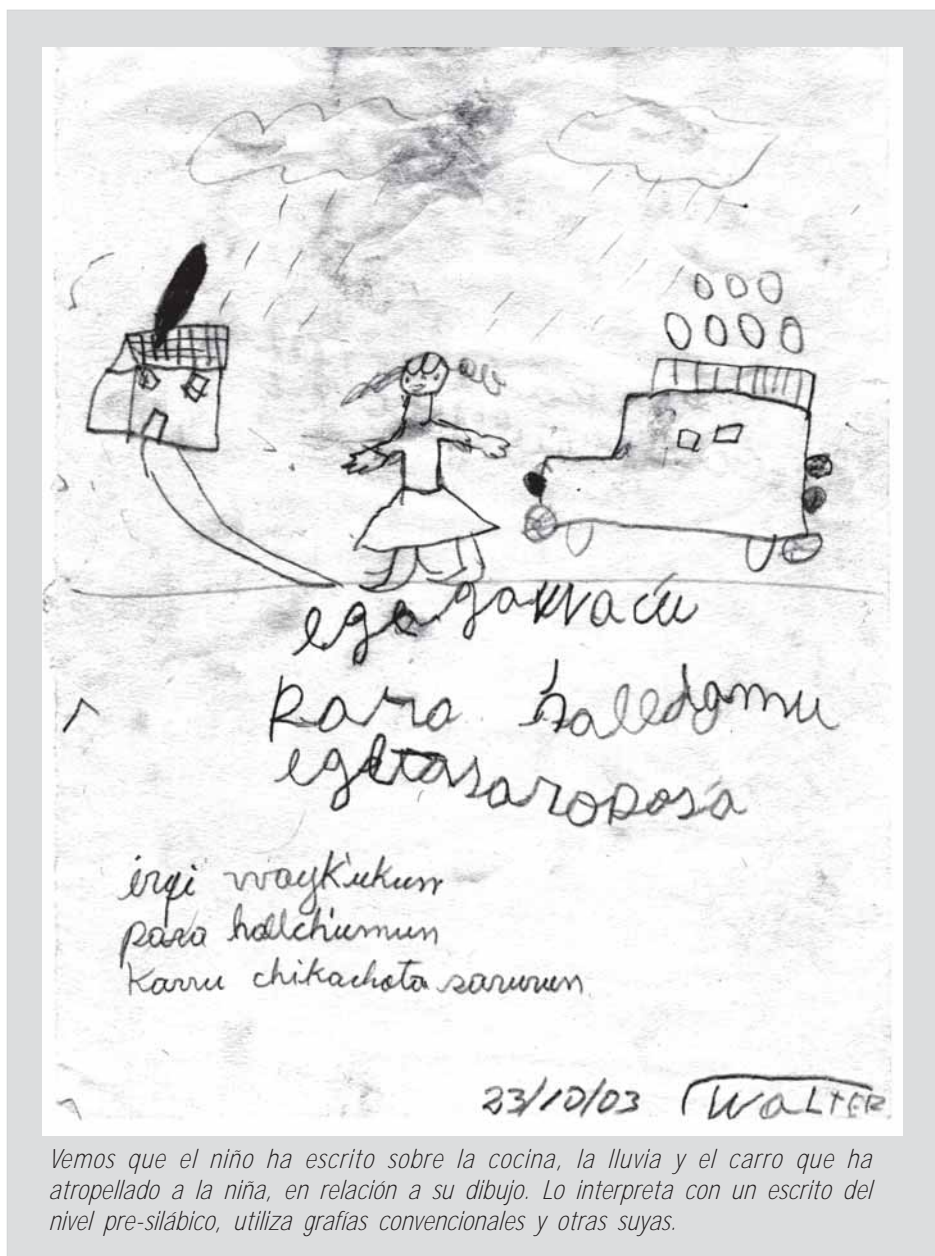 ege garvacu
para halldgmu
egltasaroposa
irqi wayk'ukun
para hallch'umun
Karru chikachata sarurun
23/10/03 WALTER
Vemos que el niño ha escrito sobre la cocina, la lluvia y el carro que ha
atropellado a la niña, en relación a su dibujo. Lo interpreta con un escrito del
nivel pre-silábico, utiliza grafías convencionales y otras suyas.